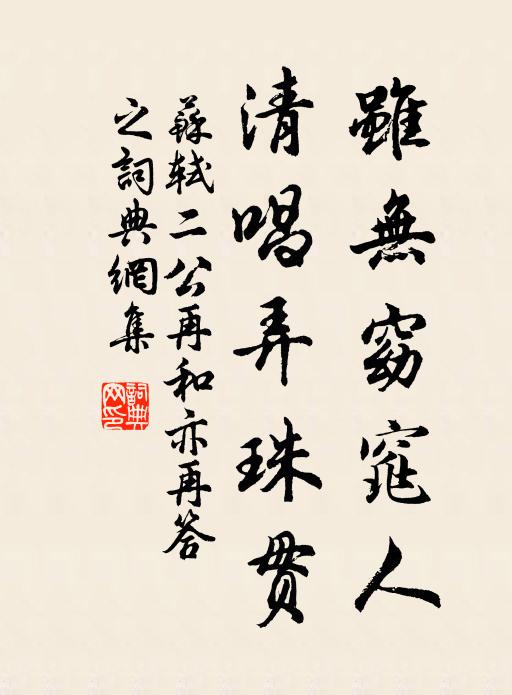 雖無窈窕人
清唱弄珠貫
蘇軾二公再和亦再答
之詞典網集
詞典網印